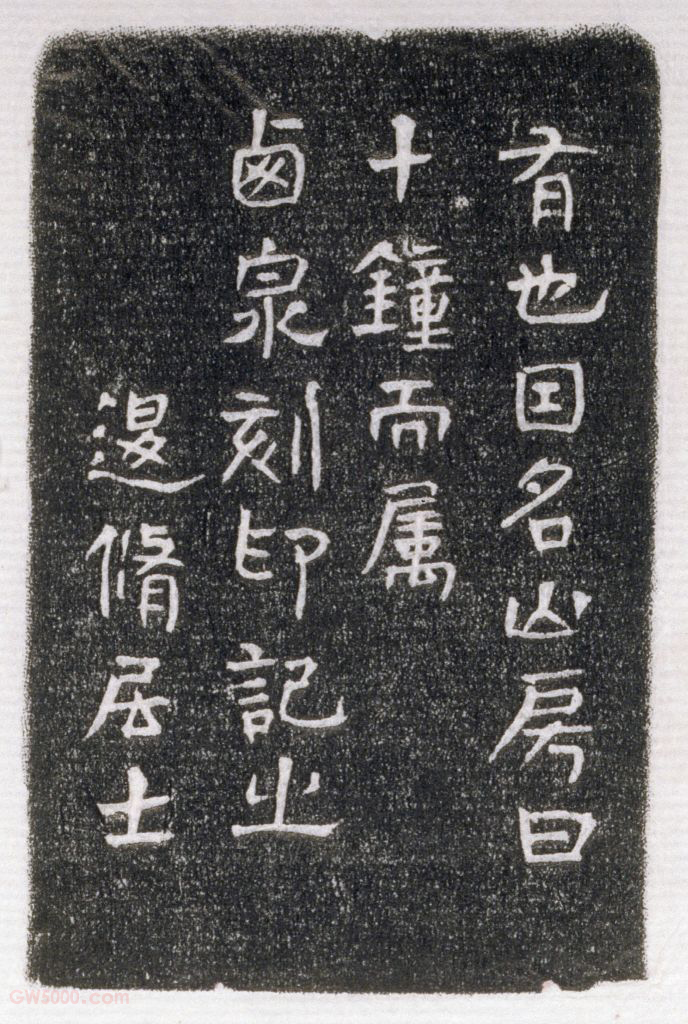 有也因名山房曰
十鐘而属
鹵泉刻印記之
退脩居士
GW5000.com